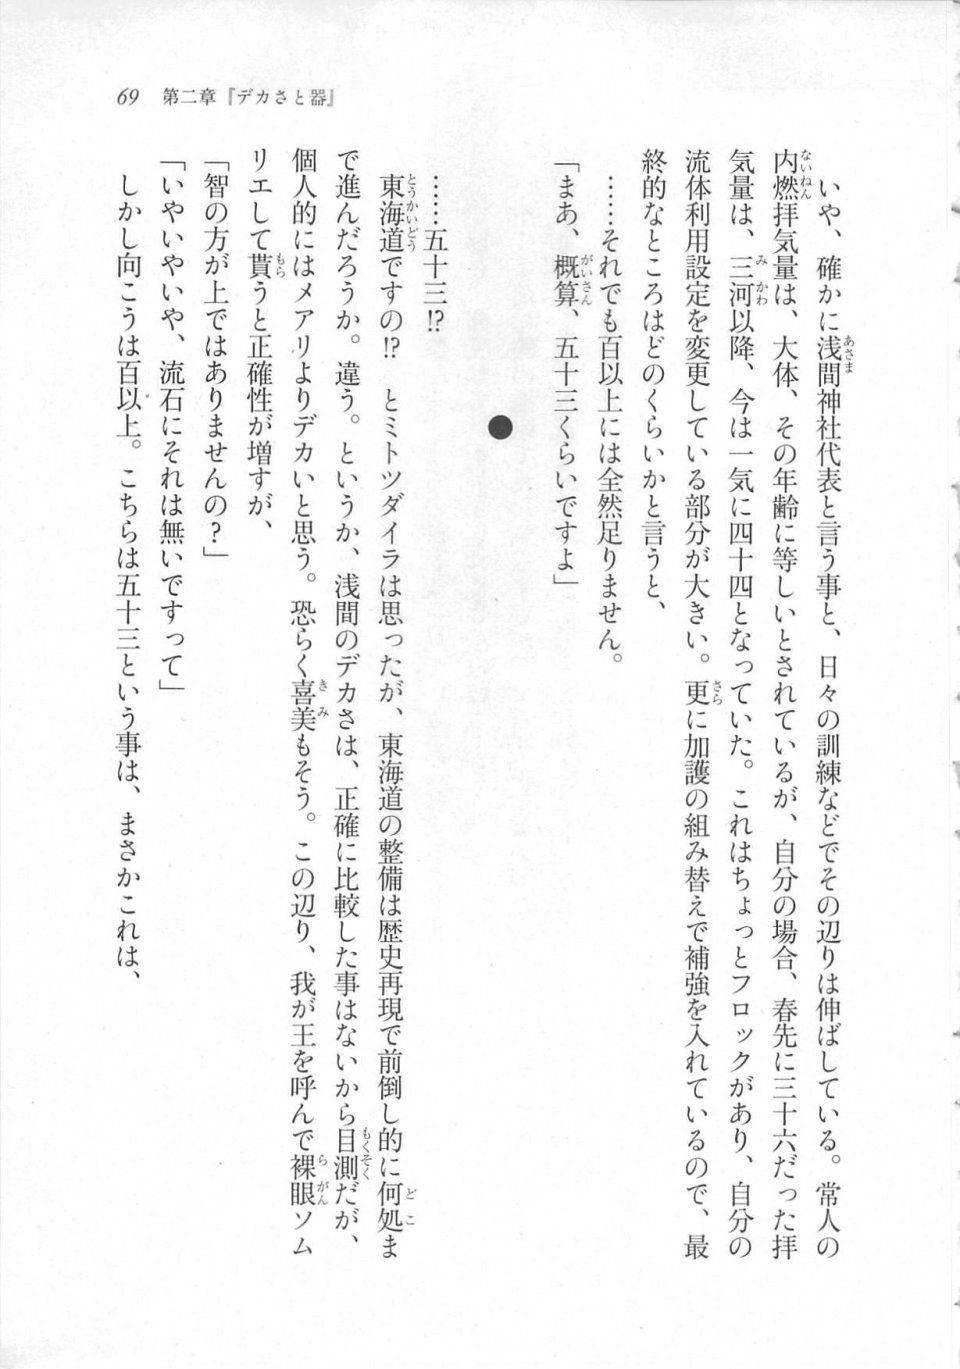 69 第二章『デカさと器』
いや、確かに浅間神社代表と言う事と、日々の訓練などでその辺りは伸ばしている。常人の
内燃拝気量は、大体、その年齢に等しいとされているが、自分の場合、春先に三十六だった拝
気量は、三河以降、今は一気に四十四となっていた。これはちょっとフロックがあり、自分の
流体利用設定を変更している部分が大きい。更に加護の組み替えで補強を入れているので、最
終的なところはどのくらいかと言うと、
……それでも百以上には全然足りません。
「まあ、概算、五十三くらいですよ」
●
……五十三!?
東海道ですの!? とミトツダイラは思ったが、東海道の整備は歴史再現で前倒し的に何処ま
で進んだろうか。違う。というか、浅間のデカさは、正確に比較した事はないから目測だが、
個人的にはメアリよりデカいと思う。恐らく喜美もそう。この辺り、我が王を呼んで裸眼ソム
リエして貰うと正確性が増すが、
「智の方が上ではありませんの?」
「いやいやいや、流石にそれは無いですって」
しかし向こうは百以上。こちらは五十三という事は、まさかこれは、